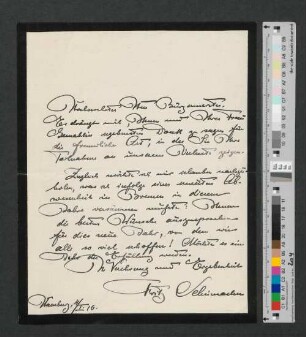 Hochverehrter Herr Bürgermeister.
Es drängt mich, Ihnen und Ihrer Frau
Gemahlin ergebensten Dank zu sagen für
die freundliche Art, in der Sie Ihre
Teilnahme an unserem Verluste zeigen.
Zugleich möchte ich mir erlauben nachzu-
holen, was ich infolge einer Ab-
wesenheit im Bremen in diesem
Jahre versäumen mußte: Ihnen
die besten Wünsche auszusprechen
für dies neue Jahr, von dem wir
alle so viel erhoffen! Möchte es ein
Jahr der Erfüllung werden.
In Verehrung und Ergebenheit
Fritz Schumacher
Hamburg, 16.